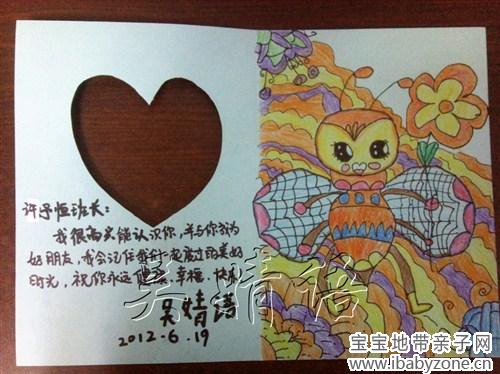 许予恒班长：
我很高兴能认识你，并与你成为
好朋友，我会记住每针一起度过的美好
时光，祝你永远健康、幸福、快乐！
吴婧语
2012.6.19
吴婧语
宝宝地带亲子网
www.ibabyzone.cn